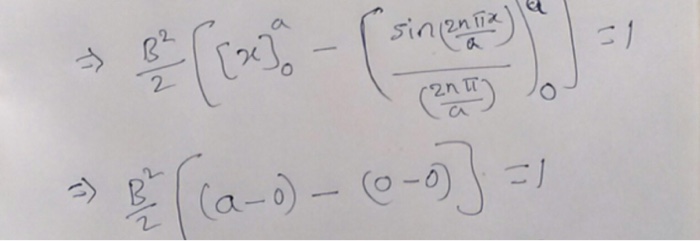 ⇒ B²/2 ( [x]₀ᵃ − ( sin(2nπx/a) / (2nπ/a) )₀ᵃ ] = 1
⇒ B²/2 [ (a−0) − (0−0) ] = 1